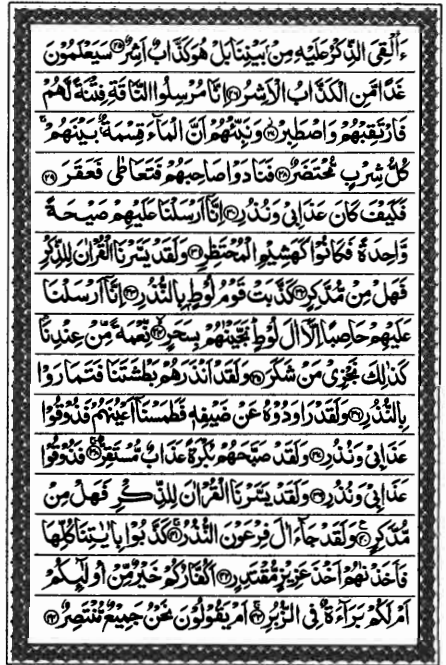 ءَاُلْقِیَ الذِّكْرُ عَلَیْهِ مِنْۢ بَیْنِنَا بَلْ هُوَ كَذَّابٌ اَشِرٌ ﴿۲۵﴾ سَیَعْلَمُوْنَ
غَدًا مَّنِ الْكَذَّابُ الْاَشِرُ ﴿۲۶﴾ اِنَّا مُرْسِلُوا النَّاقَةِ فِتْنَةً لَّهُمْ
فَارْتَقِبْهُمْ وَاصْطَبِرْ ﴿۲۷﴾ وَنَبِّئْهُمْ اَنَّ الْمَآءَ قِسْمَةٌۢ بَیْنَهُمْ
كُلُّ شِرْبٍ مُّحْتَضَرٌ ﴿۲۸﴾ فَنَادَوْا صَاحِبَهُمْ فَتَعَاطٰی فَعَقَرَ ﴿۲۹﴾
فَكَیْفَ كَانَ عَذَابِیْ وَنُذُرِ ﴿۳۰﴾ اِنَّاۤ اَرْسَلْنَا عَلَیْهِمْ صَیْحَةً
وَّاحِدَةً فَكَانُوْا كَهَشِیْمِ الْمُحْتَظِرِ ﴿۳۱﴾ وَلَقَدْ یَسَّرْنَا الْقُرْاٰنَ لِلذِّكْرِ
فَهَلْ مِنْ مُّدَّكِرٍ ﴿۳۲﴾ كَذَّبَتْ قَوْمُ لُوْطٍۭ بِالنُّذُرِ ﴿۳۳﴾ اِنَّاۤ اَرْسَلْنَا
عَلَیْهِمْ حَاصِبًا اِلَّاۤ اٰلَ لُوْطٍ نَجَّیْنٰهُمْ بِسَحَرٍ ﴿۳۴﴾ نِّعْمَةً مِّنْ عِنْدِنَا
كَذٰلِكَ نَجْزِیْ مَنْ شَكَرَ ﴿۳۵﴾ وَلَقَدْ اَنْذَرَهُمْ بَطْشَتَنَا فَتَمَارَوْا
بِالنُّذُرِ ﴿۳۶﴾ وَلَقَدْ رَاوَدُوْهُ عَنْ ضَیْفِهٖ فَطَمَسْنَاۤ اَعْیُنَهُمْ فَذُوْقُوْا
عَذَابِیْ وَنُذُرِ ﴿۳۷﴾ وَلَقَدْ صَبَّحَهُمْ بُكْرَةً عَذَابٌ مُّسْتَقِرٌّ ﴿۳۸﴾ فَذُوْقُوْا
عَذَابِیْ وَنُذُرِ ﴿۳۹﴾ وَلَقَدْ یَسَّرْنَا الْقُرْاٰنَ لِلذِّكْرِ فَهَلْ مِنْ
مُّدَّكِرٍ ﴿۴۰﴾ وَلَقَدْ جَآءَ اٰلَ فِرْعَوْنَ النُّذُرُ ﴿۴۱﴾ كَذَّبُوْا بِاٰیٰتِنَا كُلِّهَا
فَاَخَذْنٰهُمْ اَخْذَ عَزِیْزٍ مُّقْتَدِرٍ ﴿۴۲﴾ اَكُفَّارُكُمْ خَیْرٌ مِّنْ اُولٰٓئِكُمْ
اَمْ لَكُمْ بَرَآءَةٌ فِی الزُّبُرِ ﴿۴۳﴾ اَمْ یَقُوْلُوْنَ نَحْنُ جَمِیْعٌ مُّنْتَصِرٌ ﴿۴۴﴾